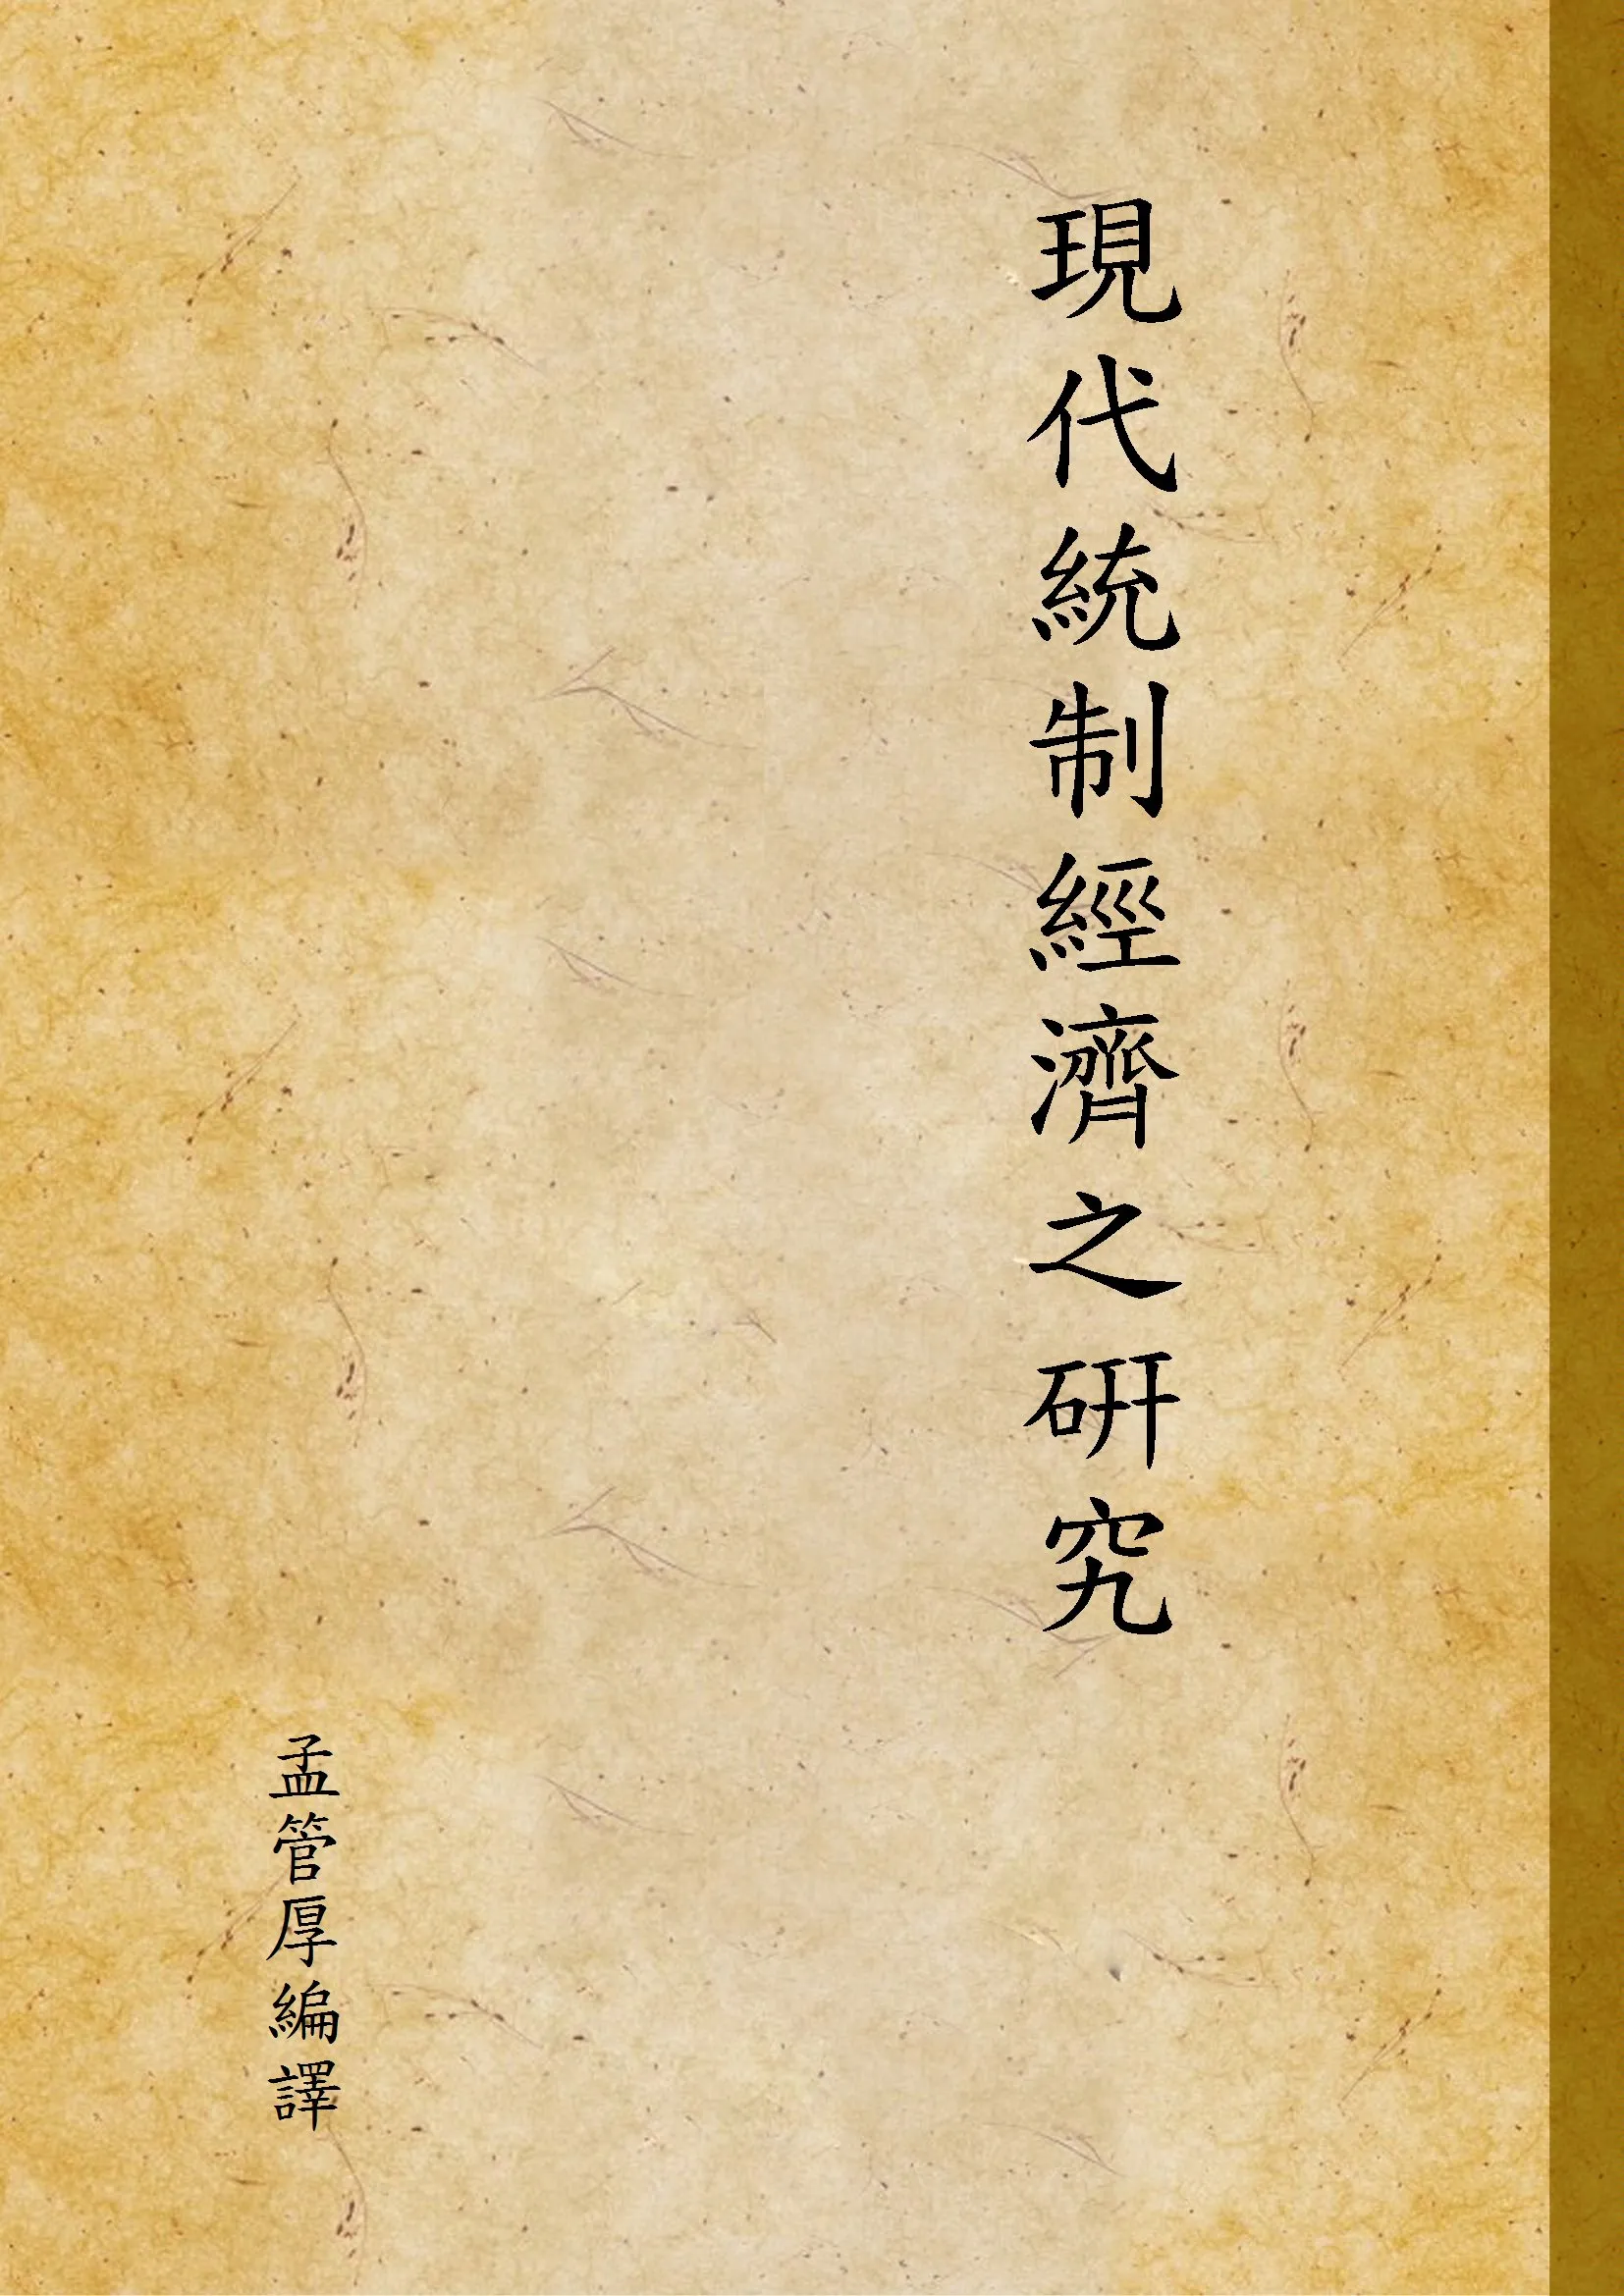 現代統制經濟之研究
孟管厚編譯